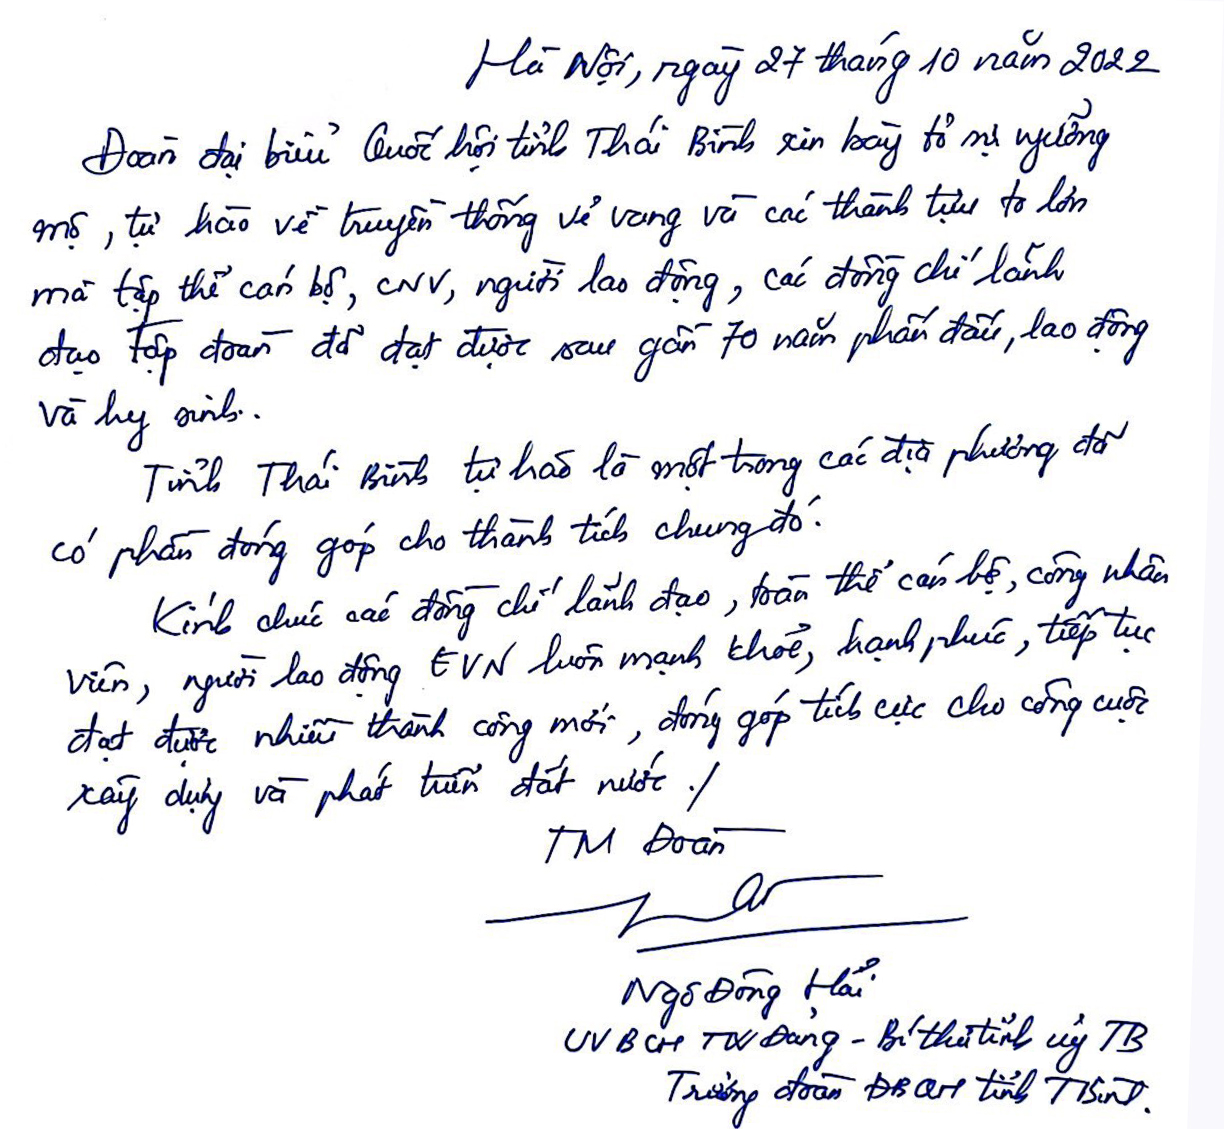 Hà Nội, ngày 27 tháng 10 năm 2022
Đoàn đại biểu Quốc hội tỉnh Thái Bình xin bày tỏ sự ngưỡng
mộ, tự hào về truyền thống vẻ vang và các thành tựu to lớn
mà tập thể cán bộ, CNV, người lao động, các đồng chí lãnh
đạo Tập đoàn đã đạt được sau gần 70 năm phấn đấu, lao động
và hy sinh.
Tỉnh Thái Bình tự hào là một trong các địa phương đã
có phần đóng góp cho thành tích chung đó.
Kính chúc các đồng chí lãnh đạo, toàn thể cán bộ, công nhân
viên, người lao động EVN luôn mạnh khoẻ, hạnh phúc, tiếp tục
đạt được nhiều thành công mới, đóng góp tích cực cho công cuộc
xây dựng và phát triển đất nước ./
TM Đoàn
Ngô Đông Hải
UVBCH TW Đảng - Bí thư tỉnh ủy TB
Trưởng đoàn ĐBQH tỉnh TBình.